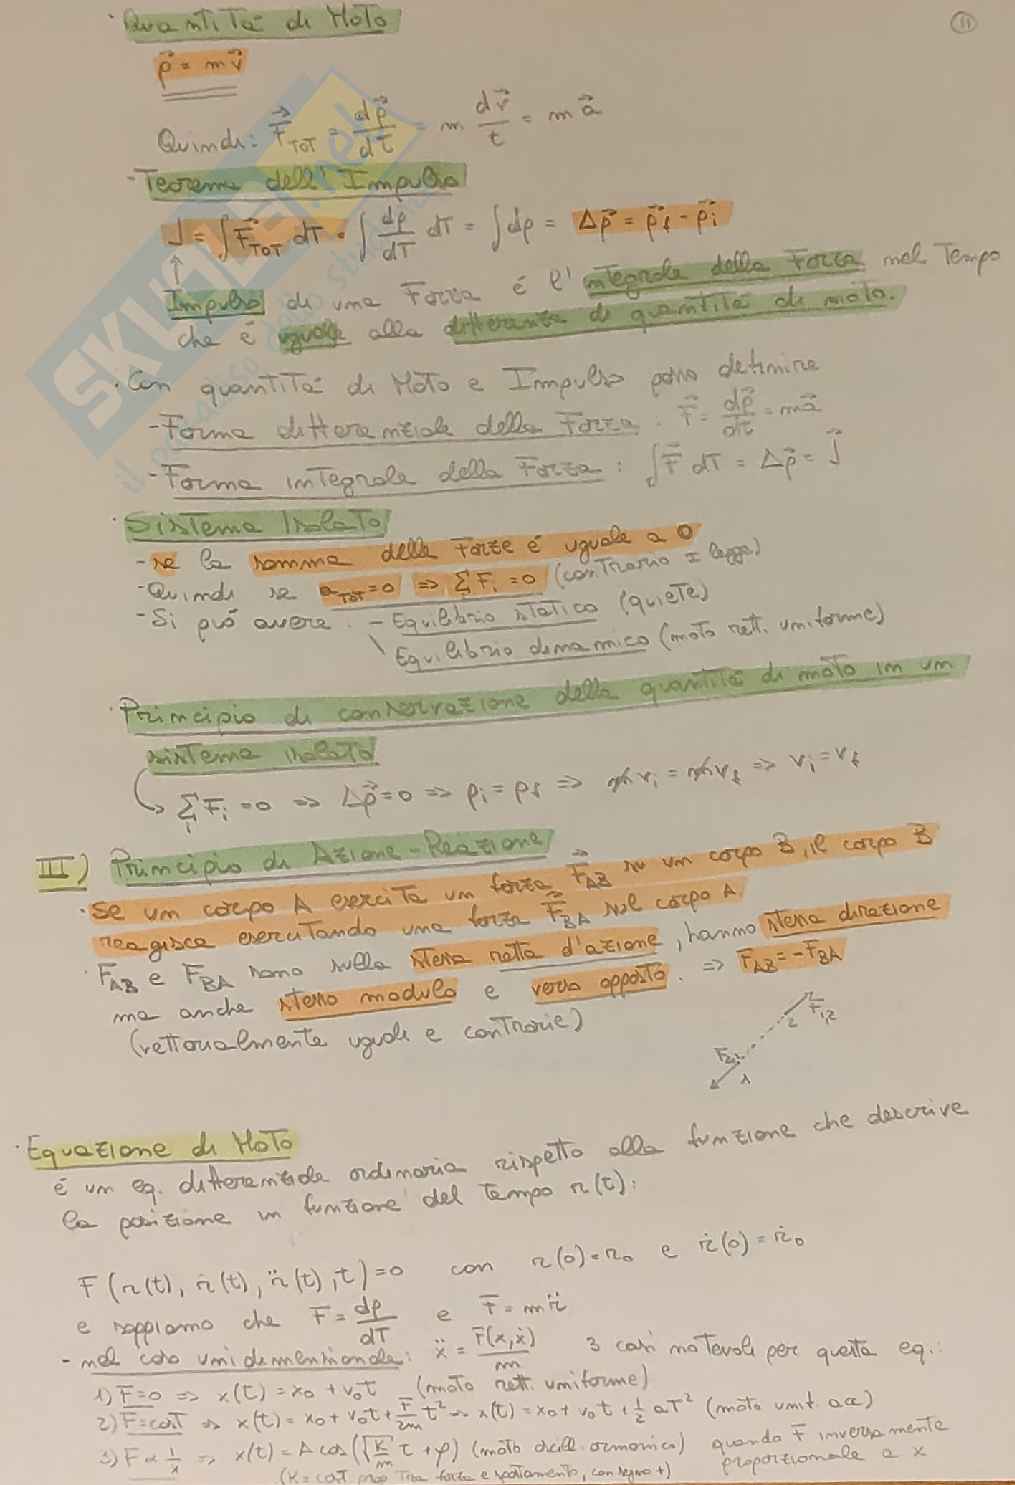 11
· Quantità di Moto
p⃗ = m v⃗
Quindi: F⃗TOT = dp⃗/dt = m dv⃗/t = m a⃗
- Teorema dell'Impulso
J = ∫ F⃗TOT dT = ∫ dp/dT dT = ∫ dp = Δp⃗ = p⃗f - p⃗i
↑
Impulso di una Forza è l'integrale della Forza nel Tempo
che è uguale alla differenza di quantità di moto.
· Con quantità di Moto e Impulso posso definire
- Forma differenziale della Forza: F⃗ = dp⃗/dt = ma⃗
- Forma integrale della Forza: ∫ F⃗ dT = Δp⃗ = J⃗
· Sistema Isolato
- se la somma delle Forze è uguale a 0
- Quindi se aTOT = 0 => Σi Fi = 0 (contrario I legge)
- Si può avere: - Equilibrio statico (quiete)
\ Equilibrio dinamico (moto rett. uniforme)
· Principio di conservazione della quantità di moto in un
sistema isolato
↳ Σi Fi = 0 => Δp⃗ = 0 => pi = pf => m vi = m vf => vi = vf
III) Principio di Azione-Reazione
· Se un corpo A esercita un forza F⃗AB su un corpo B, il corpo B
reagisce esercitando una forza F⃗BA sul corpo A
· FAB e FBA sono sulla stessa retta d'azione, hanno stessa direzione
ma anche stesso modulo e verso opposto. => FAB = -FBA
(vettorialmente uguali e contrarie)
2 F1,2
F2,1
1
· Equazione di Moto
è un eq. differenziale ordinaria rispetto alla funzione che descrive
la posizione in funzione del tempo r(t):
F(r(t), ṙ(t), r̈(t), t) = 0 con r(0) = r0 e ṙ(0) = ṙ0
e sappiamo che F = dp/dT e F = m r̈
- nel caso unidimensionale: ẍ = F(x,ẋ)/m 3 casi notevoli per questa eq.:
1) F=0 => x(t) = x0 + v0t (moto rett. uniforme)
2) F=cosT => x(t) = x0 + v0t + F/2m t² => x(t) = x0 + v0t + ½ aT² (moto unif. acc)
3) F ∝ 1/x => x(t) = A cos(√K/m t + φ) (moto oscill. armonico) quando F inversamente
proporzionale a x
(K = cosT prop Tra forza e spostamento, con segno +)
SKUOLA.net